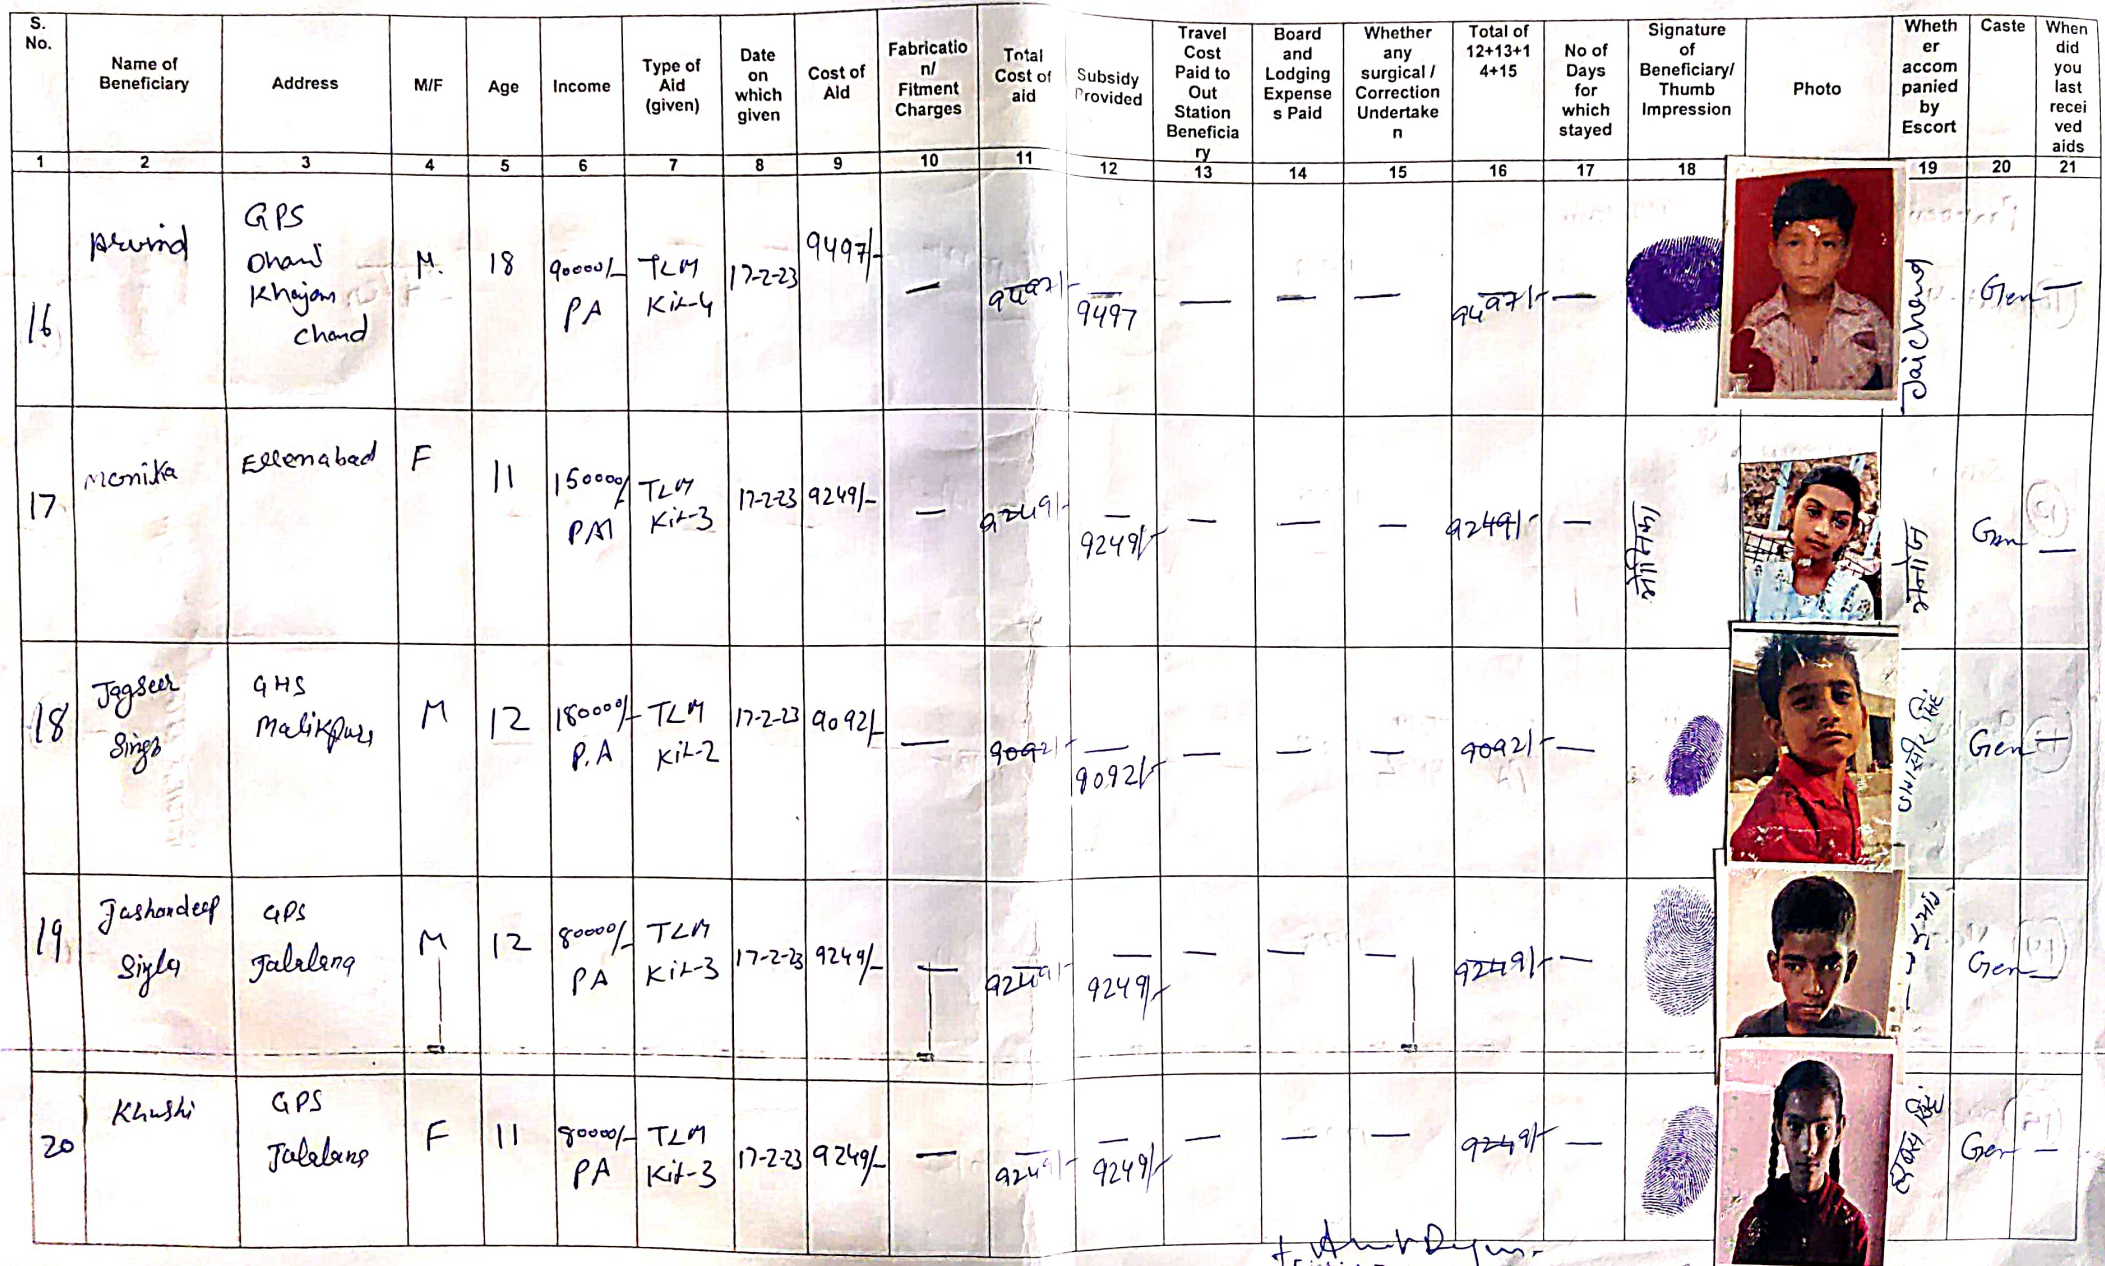 S. No. Name of Beneficiary Address M/F Age Income Type of Aid (given) Date on which given Cost of Aid Fabricatio n/ Fitment Charges Total Cost of aid Subsidy Provided Travel Cost Paid to Out Station Beneficia ry Board and Lodging Expense s Paid Whether any surgical / Correction Undertake n Total of 12+13+1 4+15 No of Days for which stayed Signature of Beneficiary/ Thumb Impression Photo Wheth er accom panied by Escort Caste When did you last recei ved aids
1 2 3 4 5 6 7 8 9 10 11 12 13 14 15 16 17 18 19 20 21
16 Arvind GPS Dhani Khajan Chand M. 18 90000/- PA TLM Kit-4 17-2-23 9497/- — 9497/- — 9497 — — — 9497/- — Jaichand Gen —
17 Monika Ellenabad F 11 150000/- PA TLM Kit-3 17-2-23 9249/- — 9249/- — 9249/- — — — 9249/- — Gen —
18 Jagseer Singh GHS Malikpura M 12 180000/- P.A TLM Kit-2 17-2-23 9092/- — 9092/- — 9092/- — — — 9092/- — जगसीर सिंह Gen —
19 Jashandeep GPS Jalalana M 12 80000/- PA TLM Kit-3 17-2-23 9249/- — 9249/- — 9249/- — — — 9249/- — Gen —
20 Khushi GPS Jalalana F 11 80000/- PA TLM Kit-3 17-2-23 9249/- — 9249/- — 9249/- — — — 9249/- — Gen —